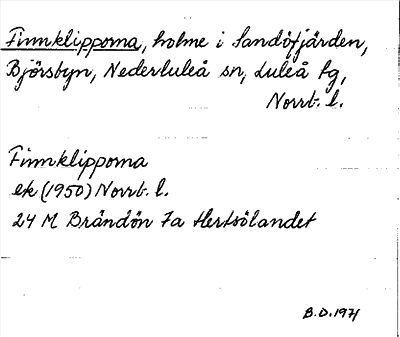 Finnklipporna, holme i Sandöfjärden,
Björsbyn, Nederluleå sn, Luleå tg,
Norrb. l.
Finnklipporna
ek (1950) Norrb. l.
24 M Brändön 7a Hertsölandet
B.D. 1971